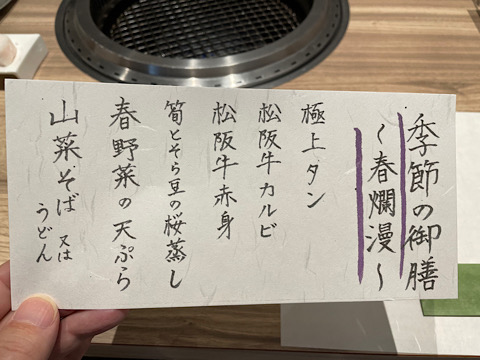 季節の御膳
〜春爛漫〜
極上タン
松阪牛カルビ
松阪牛赤身
筍とそら豆の桜蒸し
春野菜の天ぷら
山菜そば又は
うどん